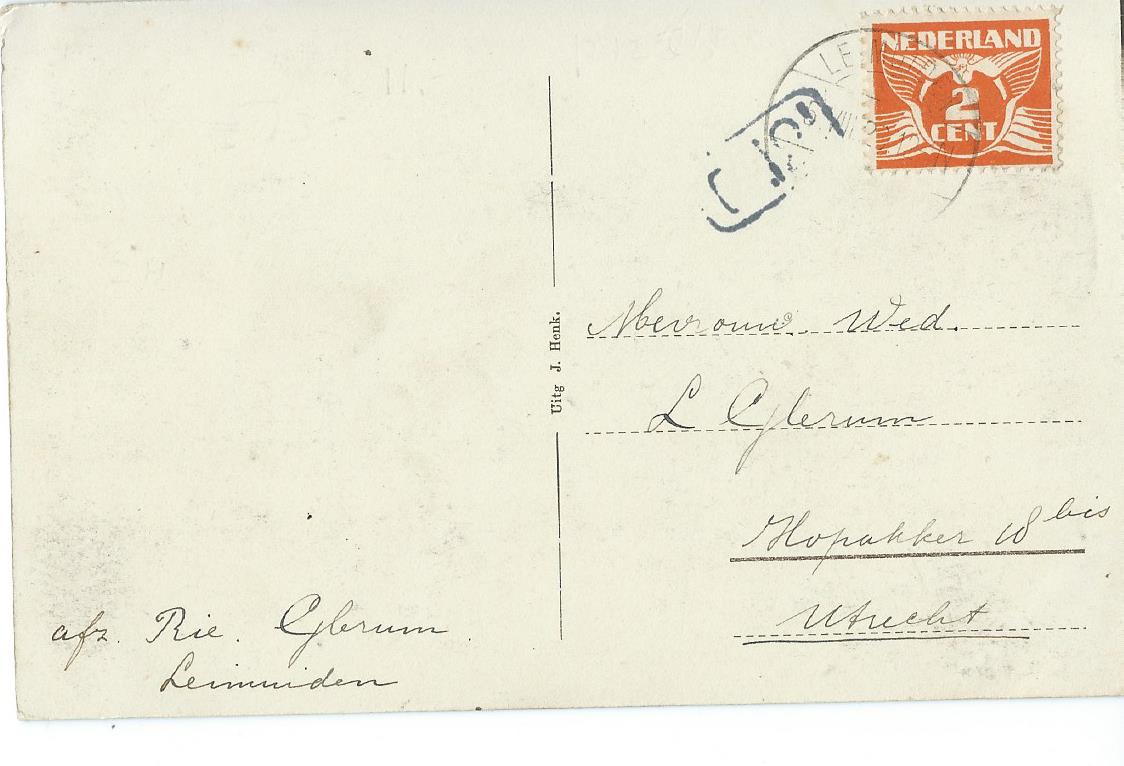 NEDERLAND
2
CENT
Mevrouw. Wed.
L Glerum
Hopakker 18 bis
Utrecht
Uitg J. Henk.
afz. Rie. Glerum.
Leimuiden